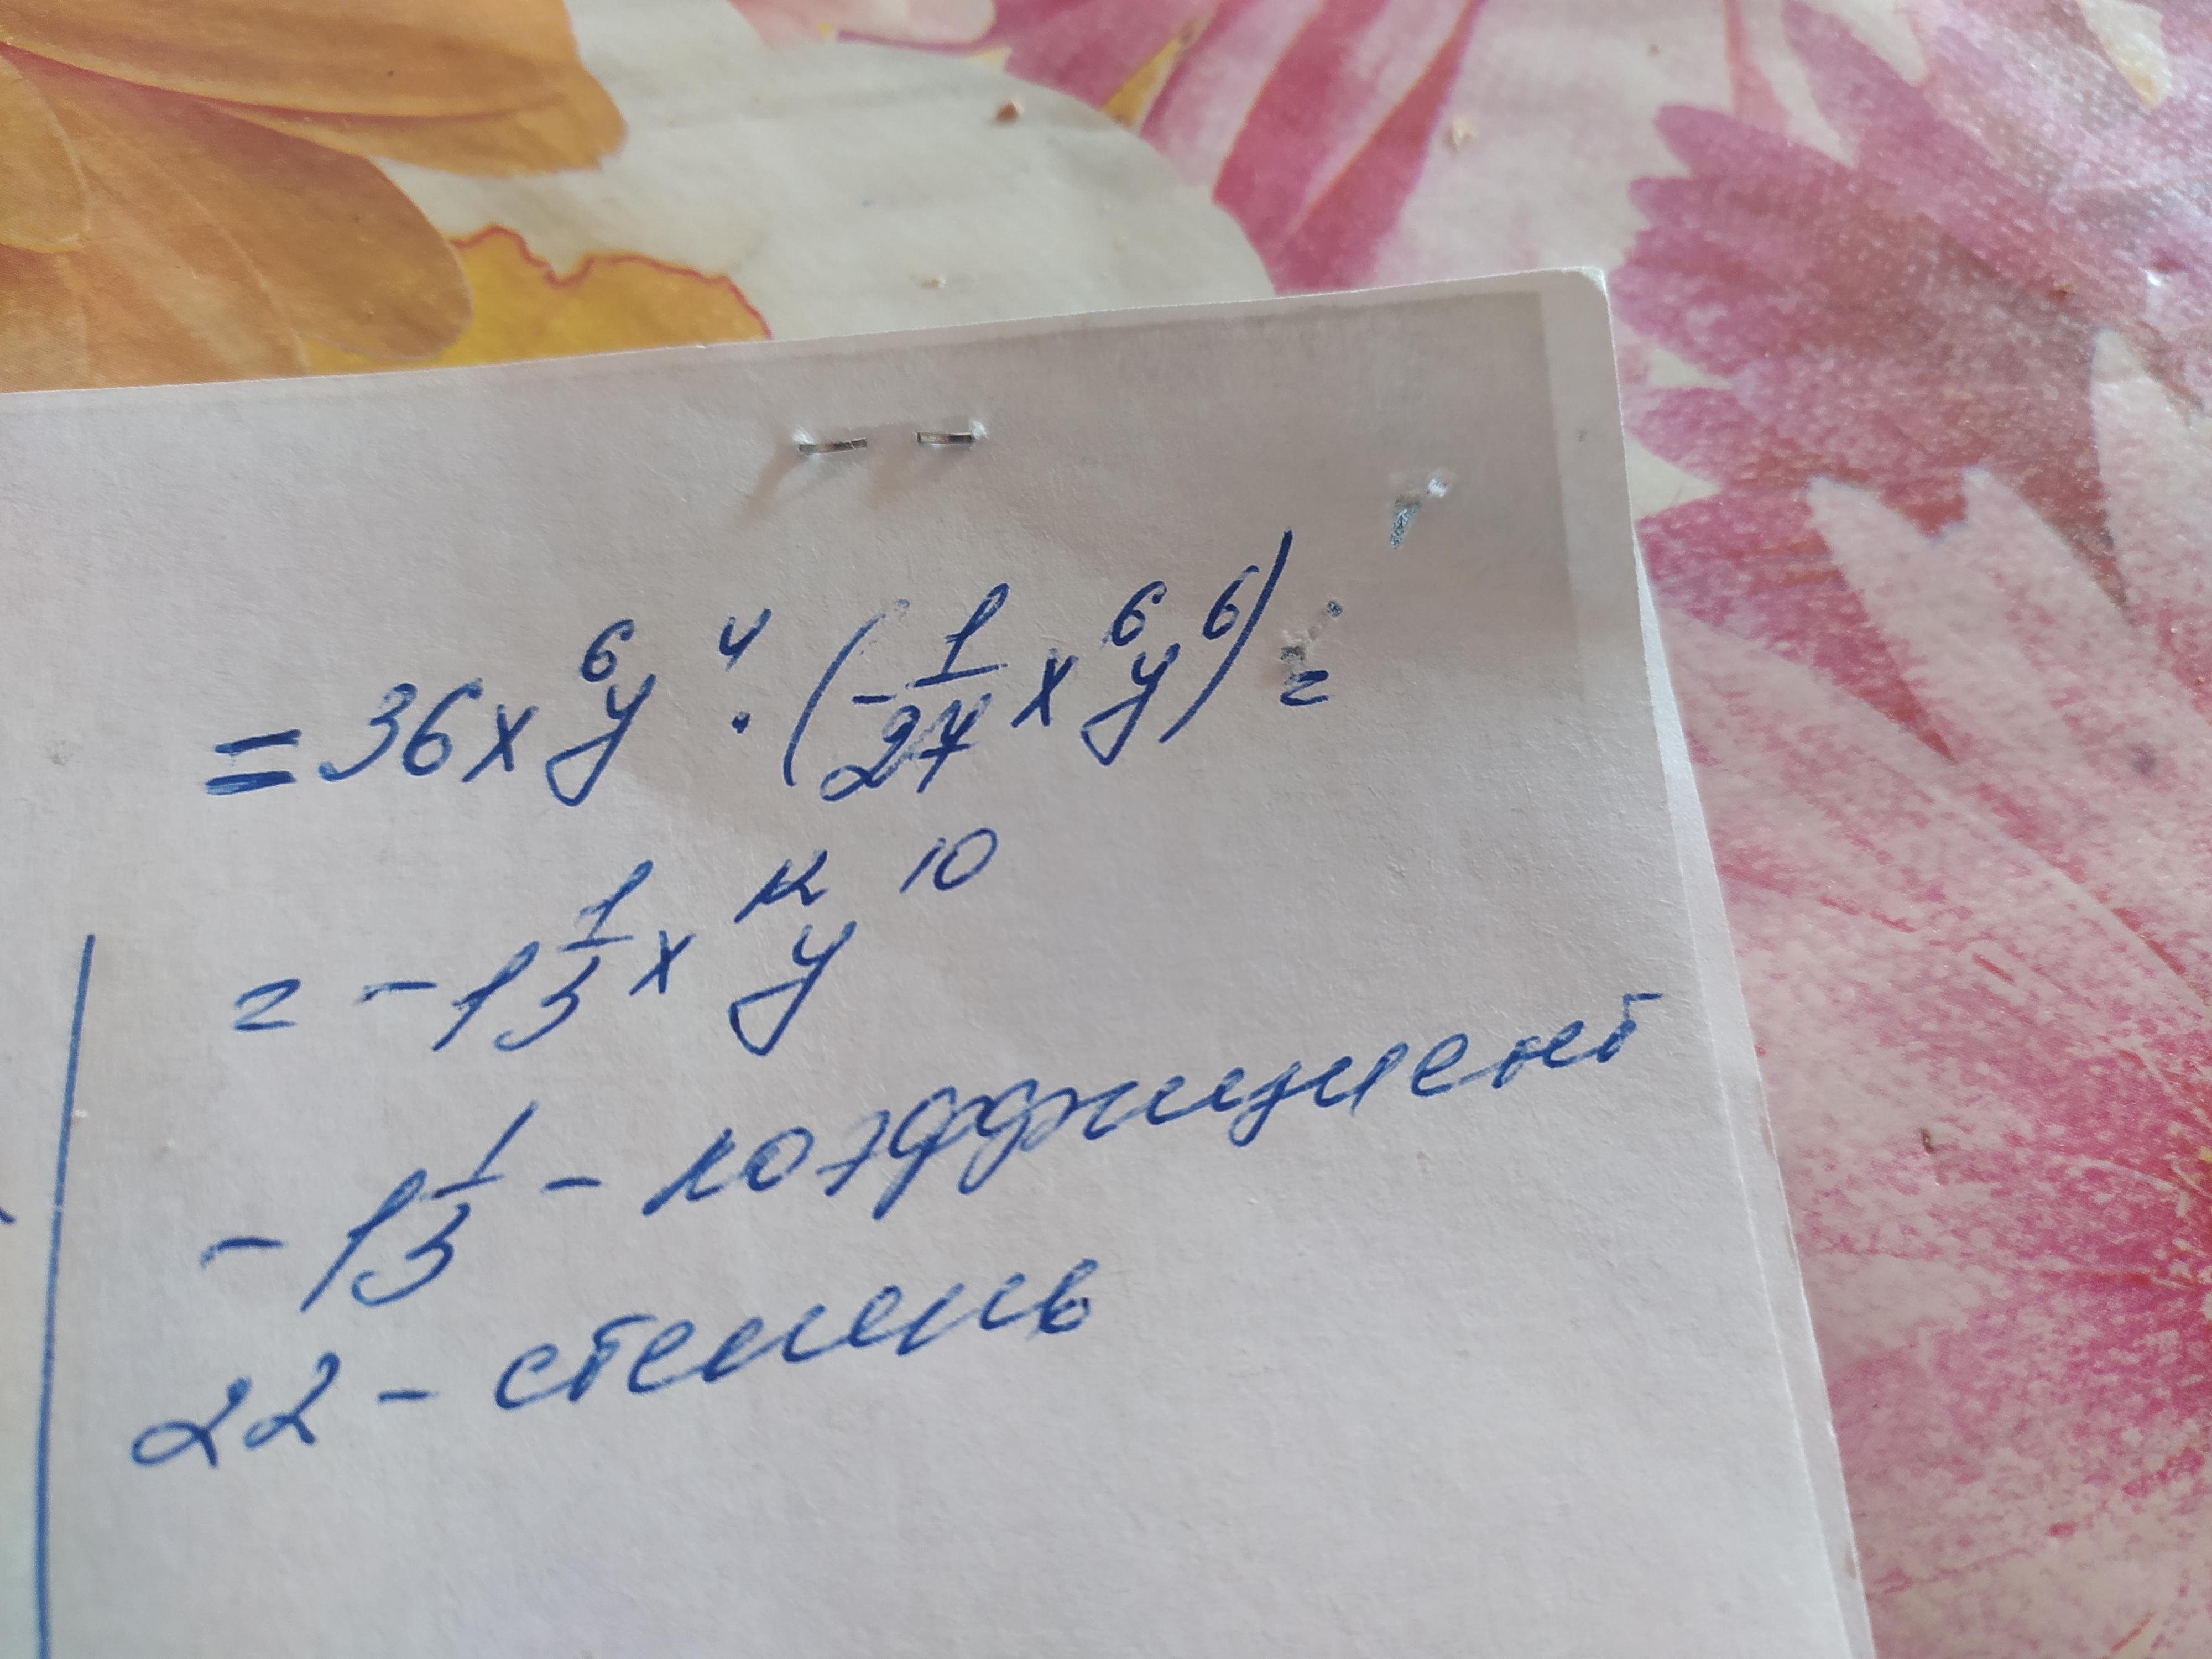 = 36x⁶y⁴ · (-1/27 x⁶y⁶) =
= -1 1/3 x¹²y¹⁰
-1 1/3 - коэффициент
22 - степень